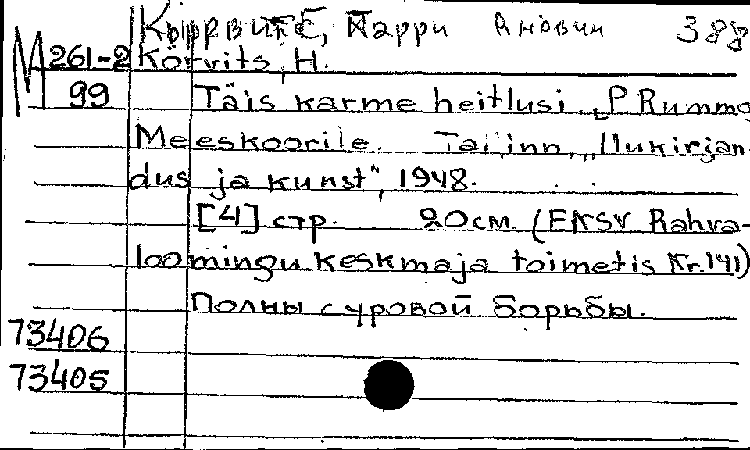 Кырвитс, Харри Янович 388
М 261-2 Kõrvits, H.
99 Täis karme heitlusi. „P. Rummo
Meeskoorile. Tallinn, „Ilukirjan-
dus ja kunst", 1948.
[4] стр. 20см. (ENSV Rahva-
loomingu Keskmaja toimetis Nr. 141)
Полны суровой борьбы.
73406
73405